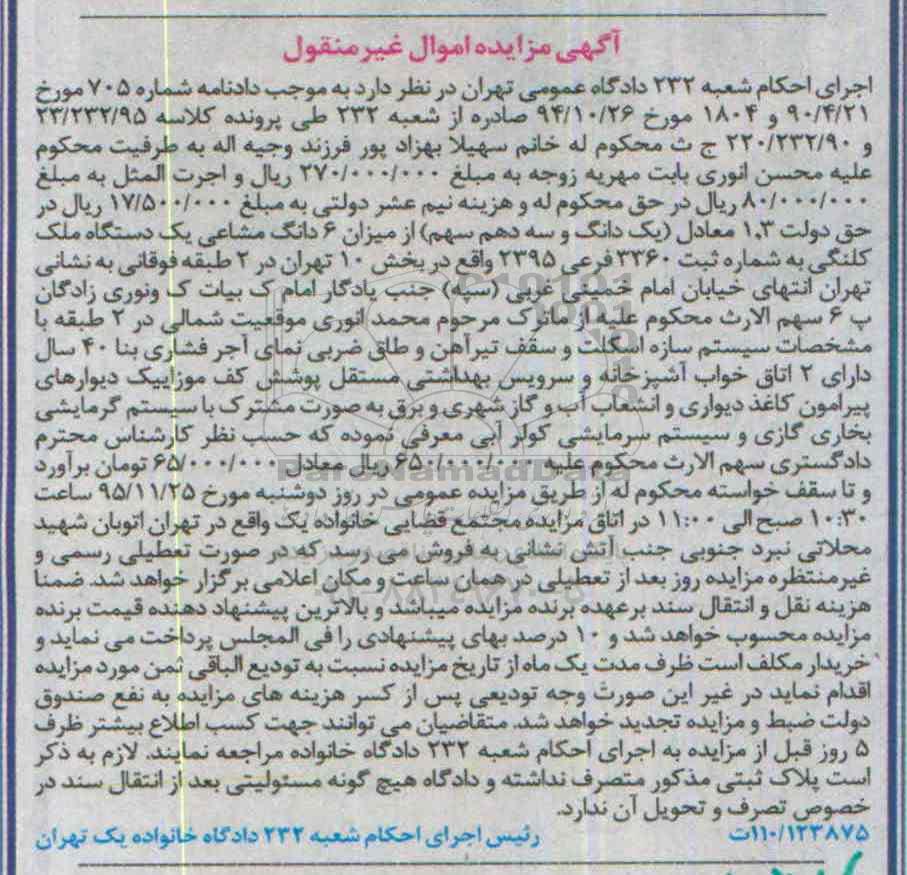 آگهی مزایده اموال غیر منقول
اجرای احکام شعبه ۲۳۲ دادگاه عمومی تهران در نظر دارد به موجب دادنامه شماره ۷۰۵ مورخ
۹۰/۴/۲۱ و ۱۸۰۴ مورخ ۹۴/۱۰/۲۶ صادره از شعبه ۲۳۲ طی پرونده کلاسه ۲۳/۲۳۲/۹۵
و ۲۲۰/۲۳۲/۹۰ ج ث محکوم له خانم سهیلا بهزاد پور فرزند وجیه اله به طرفیت محکوم
علیه محسن انوری بابت مهریه زوجه به مبلغ ۲۷۰/۰۰۰/۰۰۰ ریال و اجرت المثل به مبلغ
۸۰/۰۰۰/۰۰۰ ریال در حق محکوم له و هزینه نیم عشر دولتی به مبلغ ۱۷/۵۰۰/۰۰۰ ریال در
حق دولت ۱.۳ معادل (یک دانگ و سه دهم سهم) از میزان ۶ دانگ مشاعی یک دستگاه ملک
کلنگی به شماره ثبت ۳۳۶۰ فرعی ۲۳۹۵ واقع در بخش ۱۰ تهران در ۲ طبقه فوقانی به نشانی
تهران انتهای خیابان امام خمینی غربی (سپه) جنب یادگار امام ک بیات ک ونوری زادگان
پ ۶ سهم الارث محکوم علیه از ماترک مرحوم محمد انوری موقعیت شمالی در ۲ طبقه با
مشخصات سیستم سازه اسکلت و سقف تیرآهن و طاق ضربی نمای آجر فشاری بنا ۴۰ سال
دارای ۲ اتاق خواب آشپزخانه و سرویس بهداشتی مستقل پوشش کف موزاییک دیوارهای
پیرامون کاغذ دیواری و انشعاب آب و گاز شهری و برق به صورت مشترک با سیستم گرمایشی
بخاری گازی و سیستم سرمایشی کولر آبی معرفی نموده که حسب نظر کارشناس محترم
دادگستری سهم الارث محکوم علیه ۶۵۰/۰۰۰/۰۰۰ ریال معادل ۶۵/۰۰۰/۰۰۰ تومان برآورد
و تا سقف خواسته محکوم له از طریق مزایده عمومی در روز دوشنبه مورخ ۹۵/۱۱/۲۵ ساعت
۱۰:۳۰ صبح الی ۱۱:۰۰ در اتاق مزایده مجتمع قضایی خانواده یک واقع در تهران اتوبان شهید
محلاتی نبرد جنوبی جنب آتش نشانی به فروش می رسد که در صورت تعطیلی رسمی و
غیر منتظره مزایده روز بعد از تعطیلی در همان ساعت و مکان اعلامی برگزار خواهد شد. ضمنا
هزینه نقل و انتقال سند بر عهده برنده مزایده میباشد و بالاترین پیشنهاد دهنده قیمت برنده
مزایده محسوب خواهد شد و ۱۰ درصد بهای پیشنهادی را فی المجلس پرداخت می نماید و
خریدار مکلف است ظرف مدت یک ماه از تاریخ مزایده نسبت به تودیع الباقی ثمن مورد مزایده
اقدام نماید در غیر این صورت وجه تودیعی پس از کسر هزینه های مزایده به نفع صندوق
دولت ضبط و مزایده تجدید خواهد شد. متقاضیان می توانند جهت کسب اطلاع بیشتر ظرف
۵ روز قبل از مزایده به اجرای احکام شعبه ۲۳۲ دادگاه خانواده مراجعه نمایند. لازم به ذکر
است پلاک ثبتی مذکور متصرف نداشته و دادگاه هیچ گونه مسئولیتی بعد از انتقال سند در
خصوص تصرف و تحویل آن ندارد.
۱۱۰/۱۲۳۸۷۵ت
رئیس اجرای احکام شعبه ۲۳۲ دادگاه خانواده یک تهران
ParsNamadData